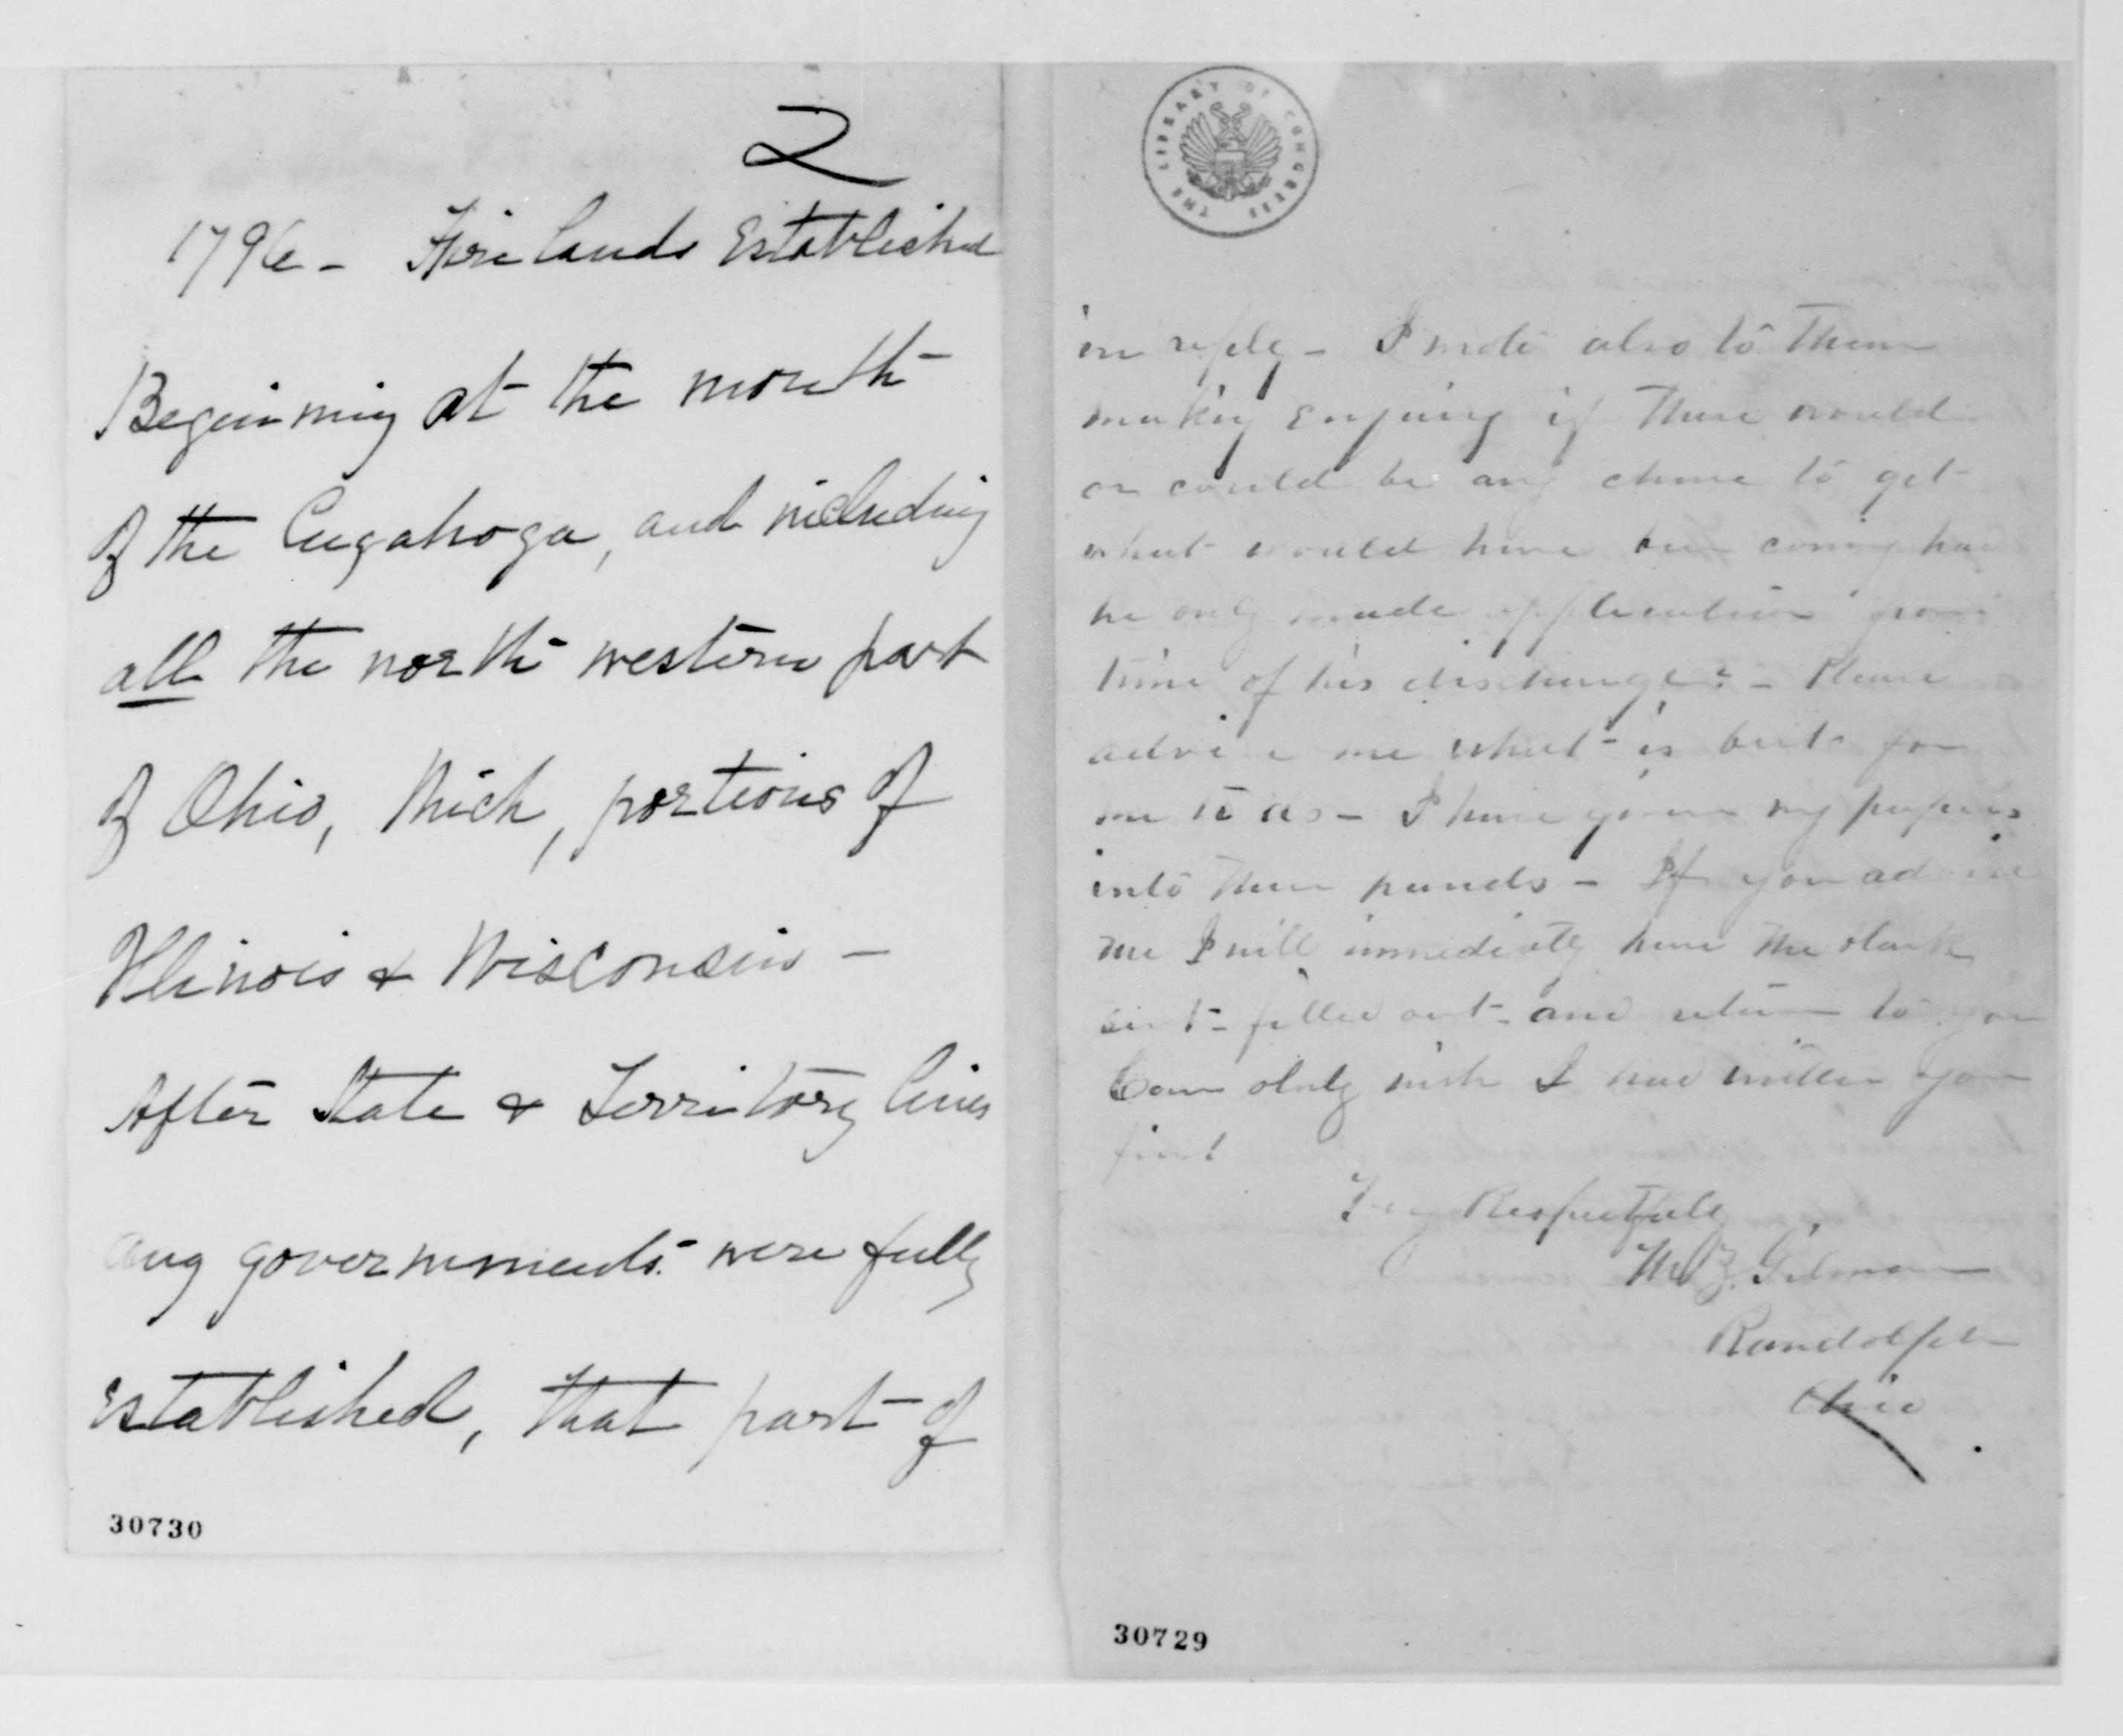 2
1796 - Firelands Established
Beginning at the mouth
of the Cuyahoga, and including
all the north western part
of Ohio, Mich, portions of
Illinois & Wisconsin -
After State & Territory lines
and governmments were fully
Established, that part of
30730
THE LIBRARY OF CONGRESS
in reply - I wrote also to them
making enquiry if there would
or could be any chance to get
what would have been coming had
he only made application from
time of his discharge? - Please
advise me what is best for
me to do - I have given my papers
into their hands - If you advise
me I will immediately have the blank
sent - filled out - and return to you
Can only wish I had written you
first
Very Respectfully
Gilman
Randolph
Ohio
30729